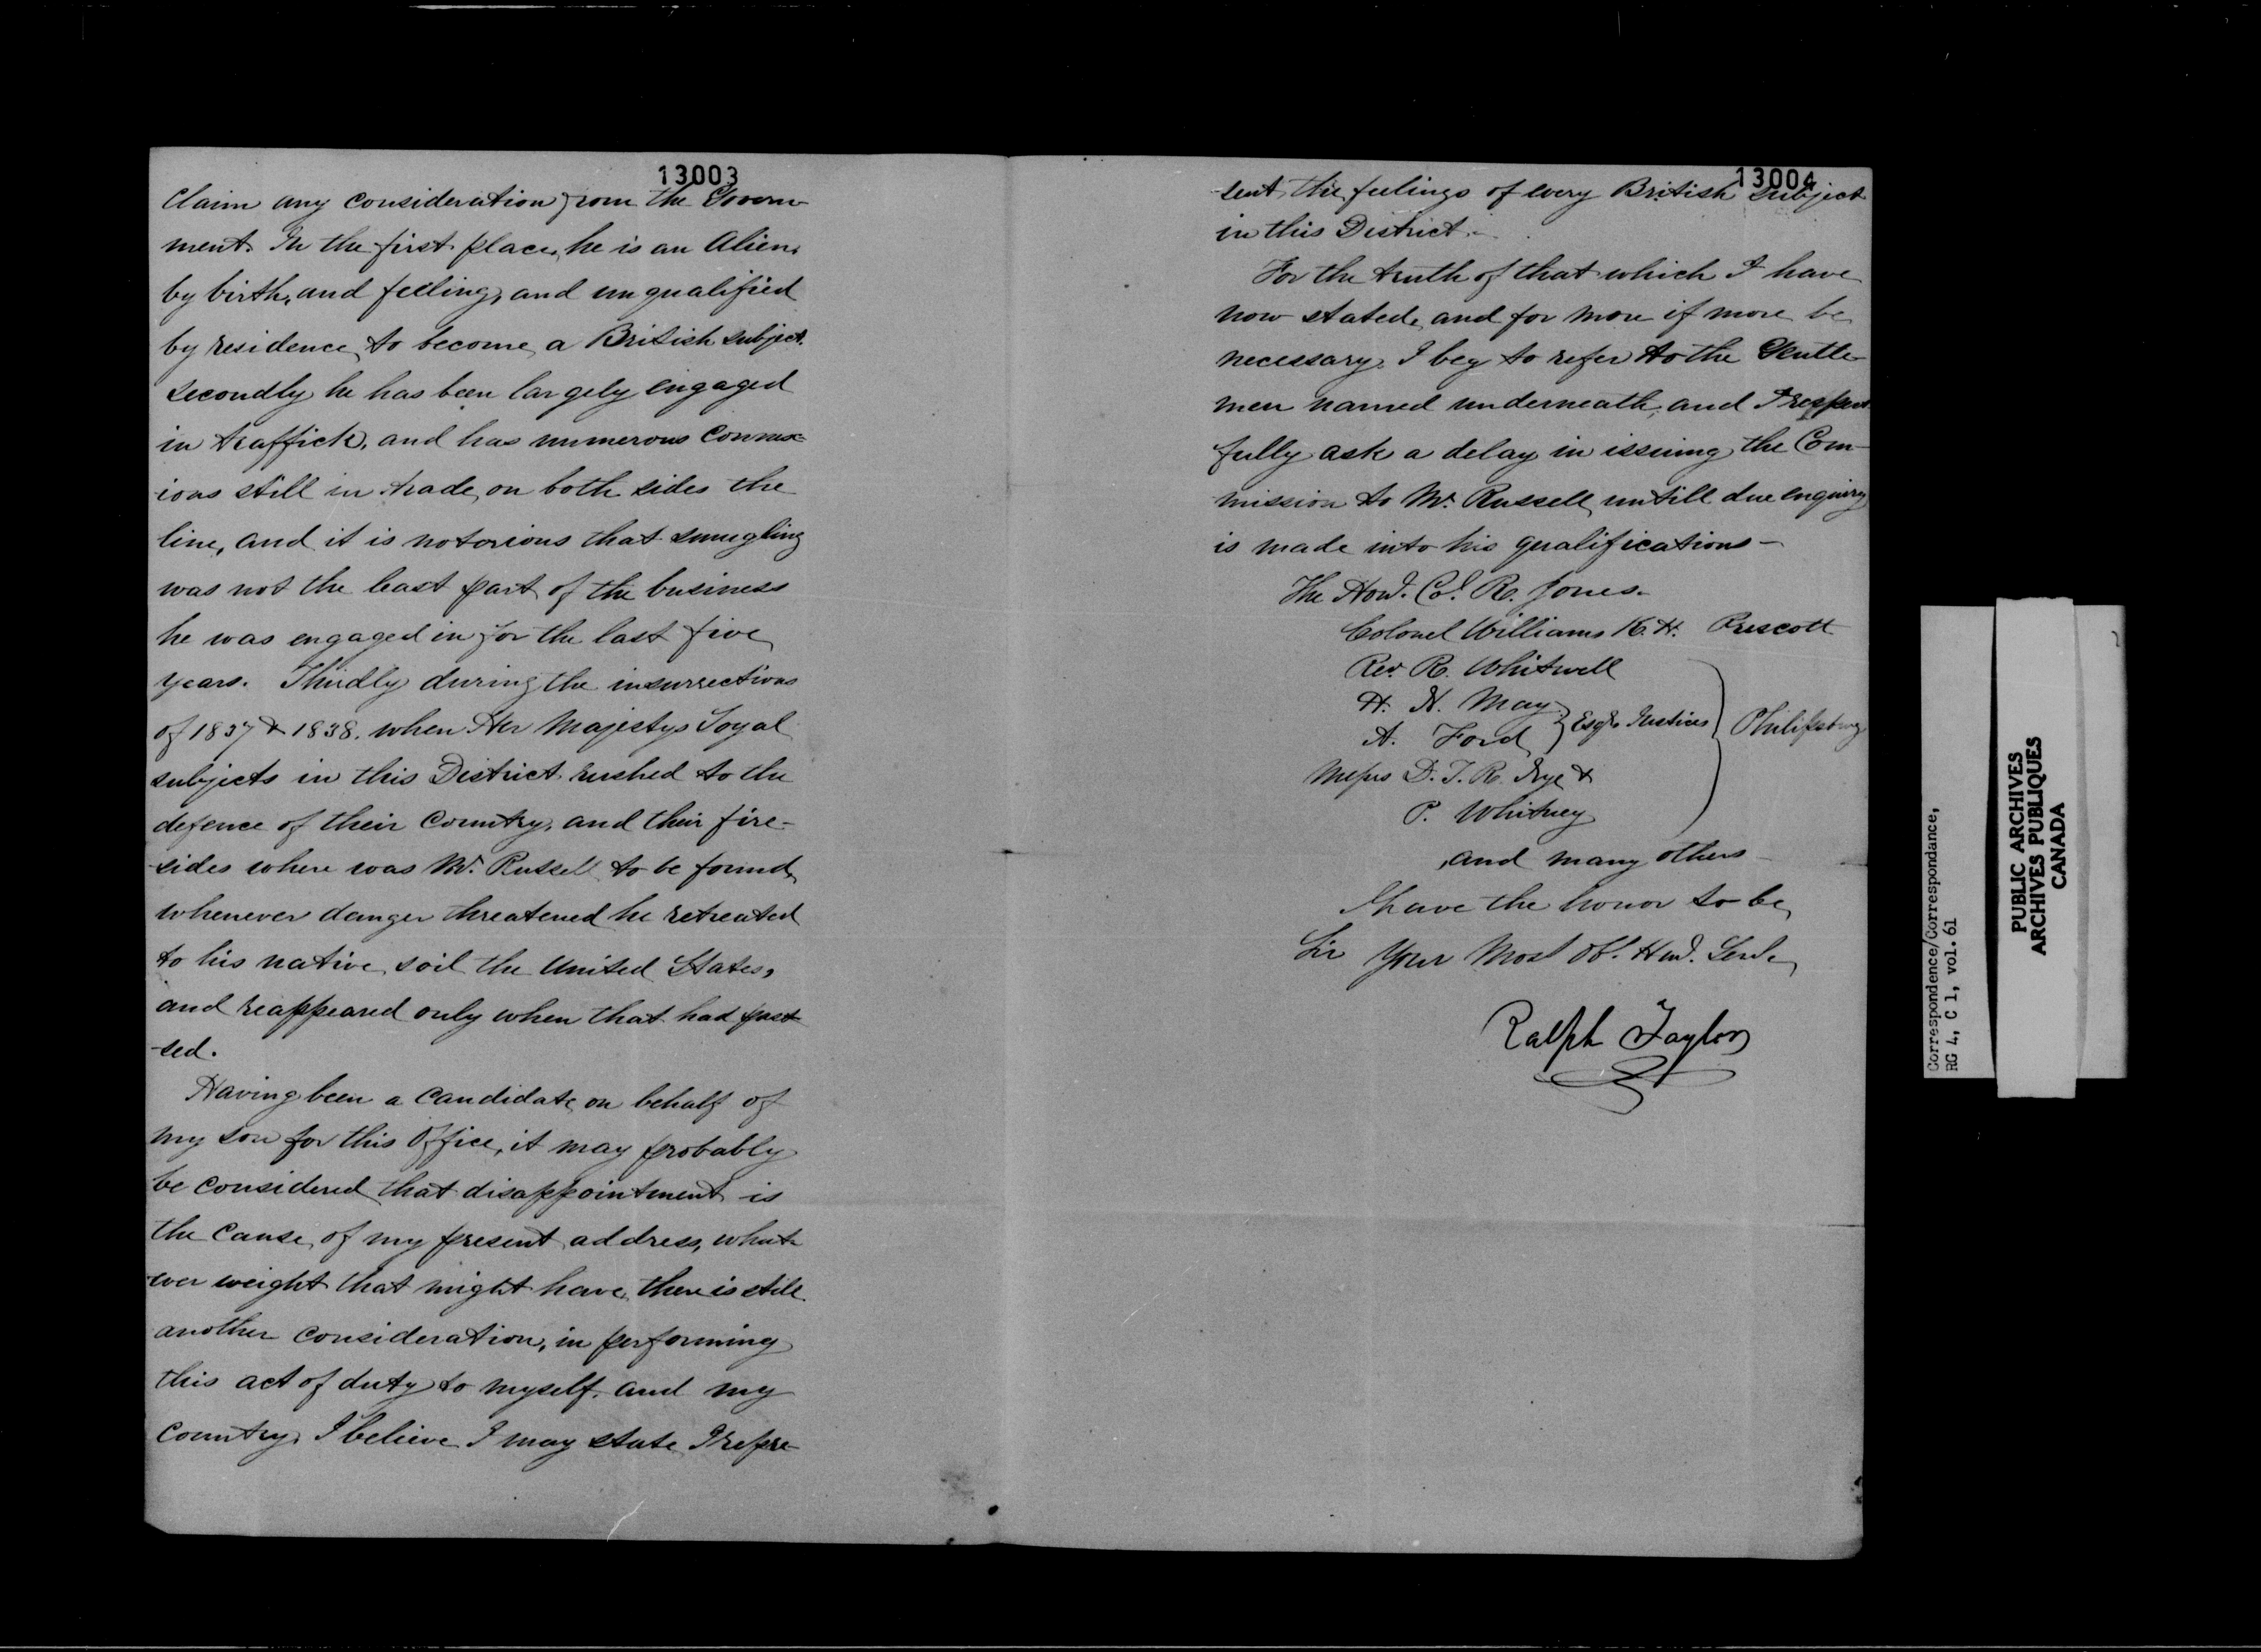 13003
Claim any consideration from the Govern-
ment. In the first place, he is an Alien,
by birth, and feeling, and unqualified
by residence, to become a British subject.
Secondly he has been largely engaged
in traffick, and has numerous Connex-
ions still in trade, on both sides the
line, and it is notorious that smugling
was not the least part of the business
he was engaged in for the last five
years. Thirdly during the insurrections
of 1837 & 1838. when Her Majestys Loyal
subjects in this District rushed to the
defence of their Country, and their fire-
sides where was Mr. Russell to be found,
whenever danger threatened he retreated
to his native soil the United States,
and reappeared only when that had pas-
sed.
Having been a Candidate, on behalf of
my son for this Office, it may probably
be considered that disappointment is
the cause, of my present address, what-
ever weight that might have, there is still
another consideration, in performing
this act of duty to myself, and my
Country, I believe I may state I repre-
13004
sent the feelings of every British Subject
in this District.-
For the truth of that which I have
now stated, and for more if more be
necessary, I beg to refer to the Gentle-
men named underneath, and I respect-
fully ask a delay in issuing the Com-
mission to Mr. Russell, untill due enquiry
is made into his qualifications—
The Hond. Col. R. Jones.
Colonel Williams K.H. Prescott
Rev. R. Whitwell
H. N. May
A. Ford } Esqrs Justices } Philipsburg
Messrs D. T. R. Nye &
P. Whitney
and many others—
I have the honor to be,
Sir Your Most Obt. Hud. Servt.
Ralph Taylor
Correspondence/Correspondance,
RG 4, C 1, vol. 61
PUBLIC ARCHIVES
ARCHIVES PUBLIQUES
CANADA